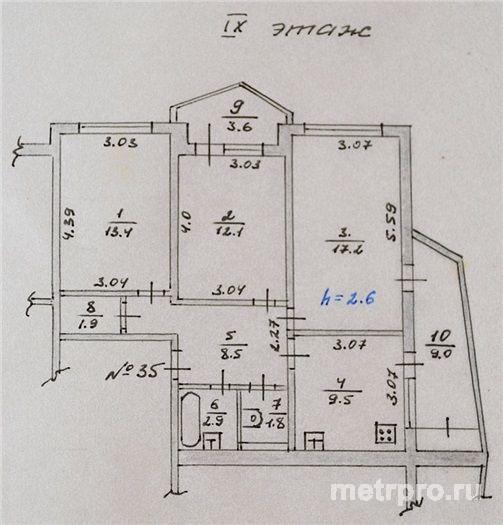 IX этаж
9
3.6
3.03
3.03
3.07
4.39
1
13.4
4.0
2
12.1
3.
17.2
5.59
3.04
3.04
h=2.6
8
1.9
5
8.5
2.27
3.07
10
9.0
№35
4
9.5
3.07
6
2.9
7
1.8
metrpro.ru